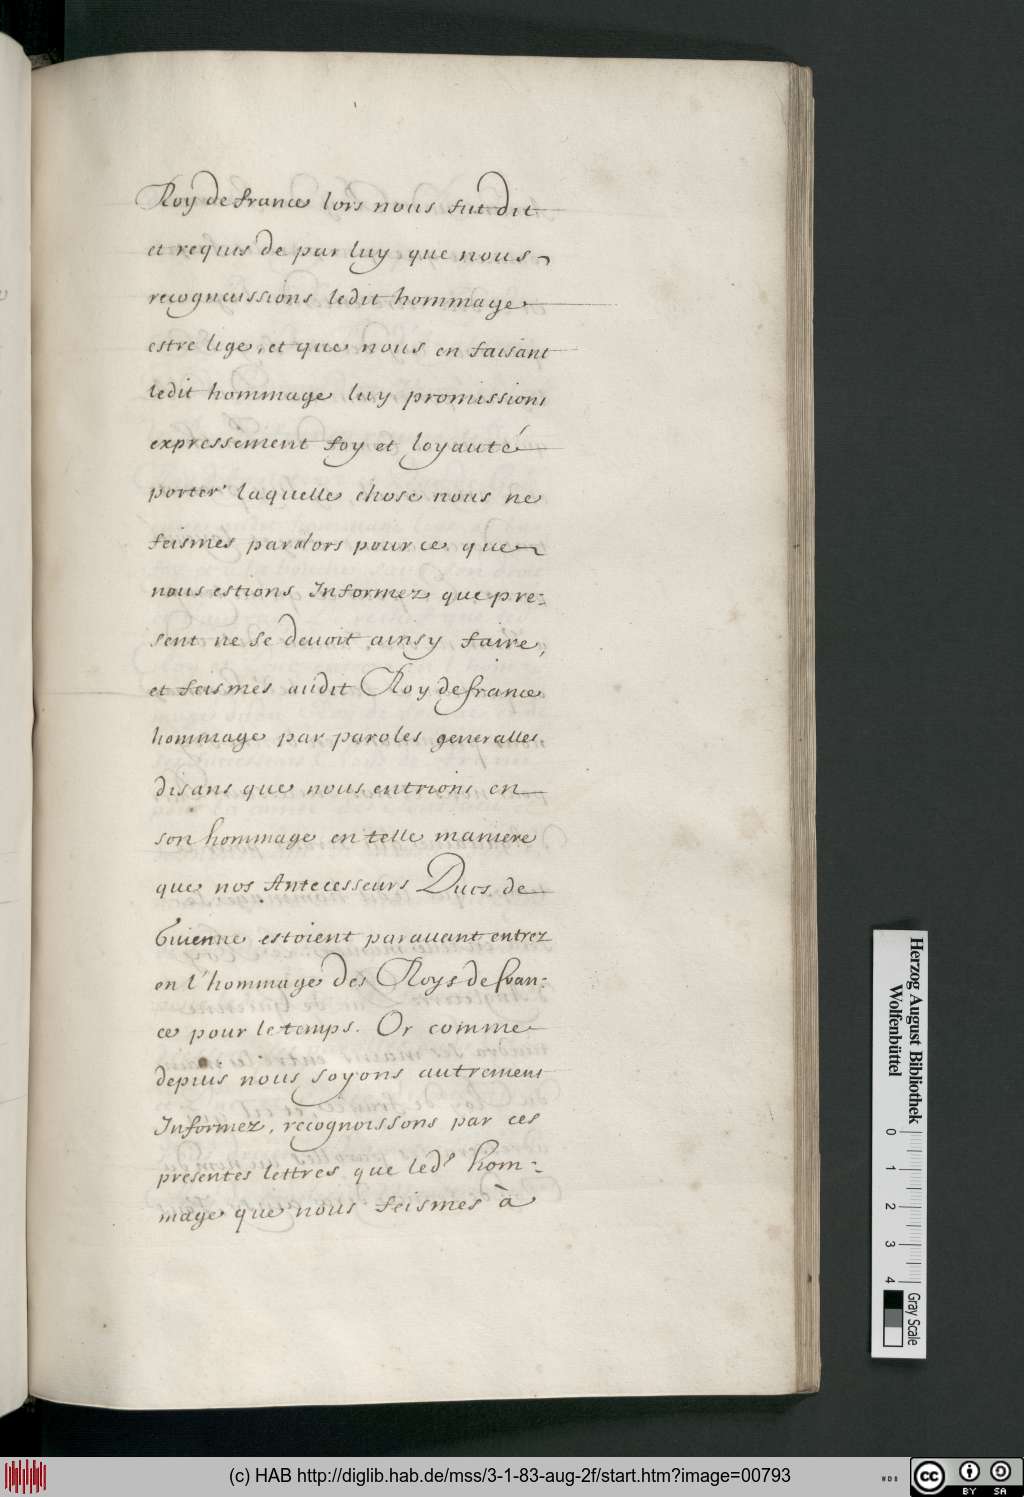 Roy de france lors nous fut dit
et requis de par luy que nous
recognoissions ledit hommage
estre lige, et que nous en faisant
ledit hommage luy promissions
expressement foy et loyauté
porter laquelle chose nous ne
feismes par alors pour ce que
nous estions Informez que pre-
sent ne se deuoit ainsy faire,
et feismes audit Roy de france
hommage par paroles generalles,
disans que nous entrions en
son hommage en telle maniere
que nos Antecesseurs Ducs de
Guienne estoient parauant entrez
en l'hommage des Roys de fran-
ce pour le temps. Or comme
depuis nous soyons autrement
Informez, recognoissons par ces
presentes lettres que led.t hom-
mage que nous feismes à
Herzog August Bibliothek
Wolfenbüttel
0 1 2 3 4
Gray Scale
(c) HAB http://diglib.hab.de/mss/3-1-83-aug-2f/start.htm?image=00793
WDB
cc BY SA